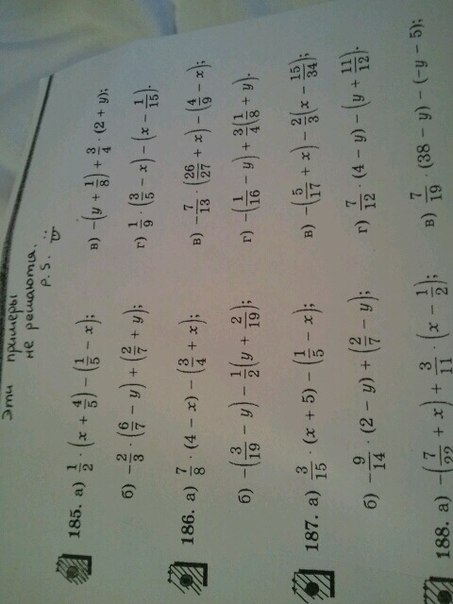 эти примеры
не решаются.
P.S.
185. а) 1/2 · (x + 4/5) − (1/5 − x); в) −(y + 1/8) + 3/4 · (2 + y);
б) −2/3 · (6/7 − y) + (2/7 + y); г) 1/9 · (3/5 − x) − (x − 1/15).
186. а) 7/8 · (4 − x) − (3/4 + x); в) −7/13 · (26/27 + x) − (4/9 − x);
б) −(3/19 − y) − 1/2(y + 2/19); г) −(1/16 − y) + 3/4(1/8 + y).
187. а) 3/15 · (x + 5) − (1/5 − x); в) −(5/17 + x) − 2/3(x − 15/34);
б) −9/14 · (2 − y) + (2/7 − y); г) 7/12 · (4 − y) − (y + 11/12).
188. а) −(7/22 + x) + 3/11 · (x − 1/2); в) 7/19 · (38 − y) − (−y − 5);